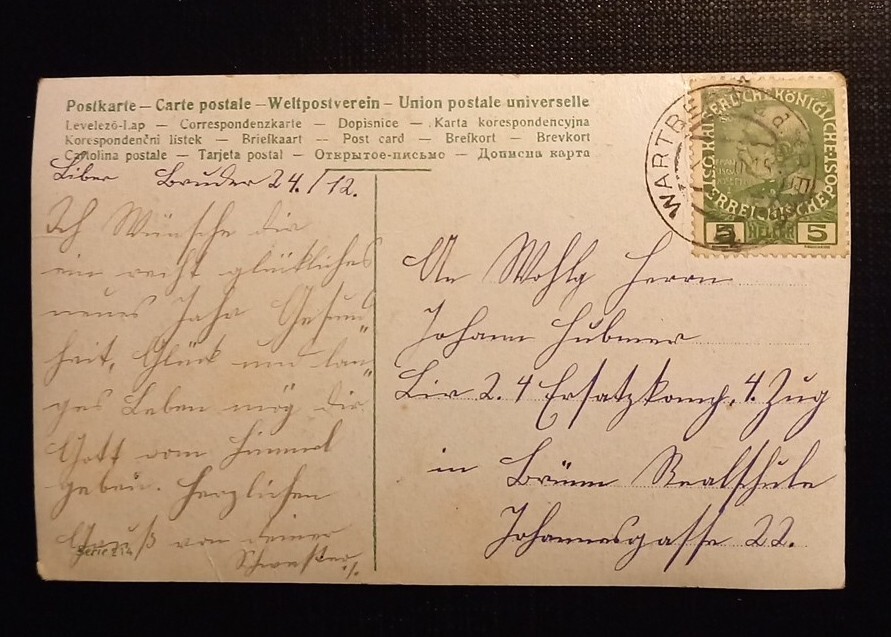 Postkarte – Carte postale – Weltpostverein – Union postale universelle
Levelező-Lap — Correspondenzkarte — Dopisnice — Karta korespondencyjna
Korespondenční lístek — Briefkaart — Post card — Brefkort — Brevkort
Cartolina postale — Tarjeta postal — Открытое-письмо — Дописна карта
Liber Bruder 24./12.
Ich Wünsche dir
ein recht glükliches
neues Jahr Gesund
heit, Glück und lan
ges Leben mög dir
Gott vom Himmel
geben. Herzlichen
Gruß von deiner
Schwester
Serie 214
WARTBE
KAISERLICHE KÖNIGLICHE
ÖSTERREICHISCHE POST
5 HELLER 5
An Wohlg Herrn
Johann Hubmer
2. 4 Ersatzkomp. 4. Zug
in Brünn Realschule
Johannesgasse 22.